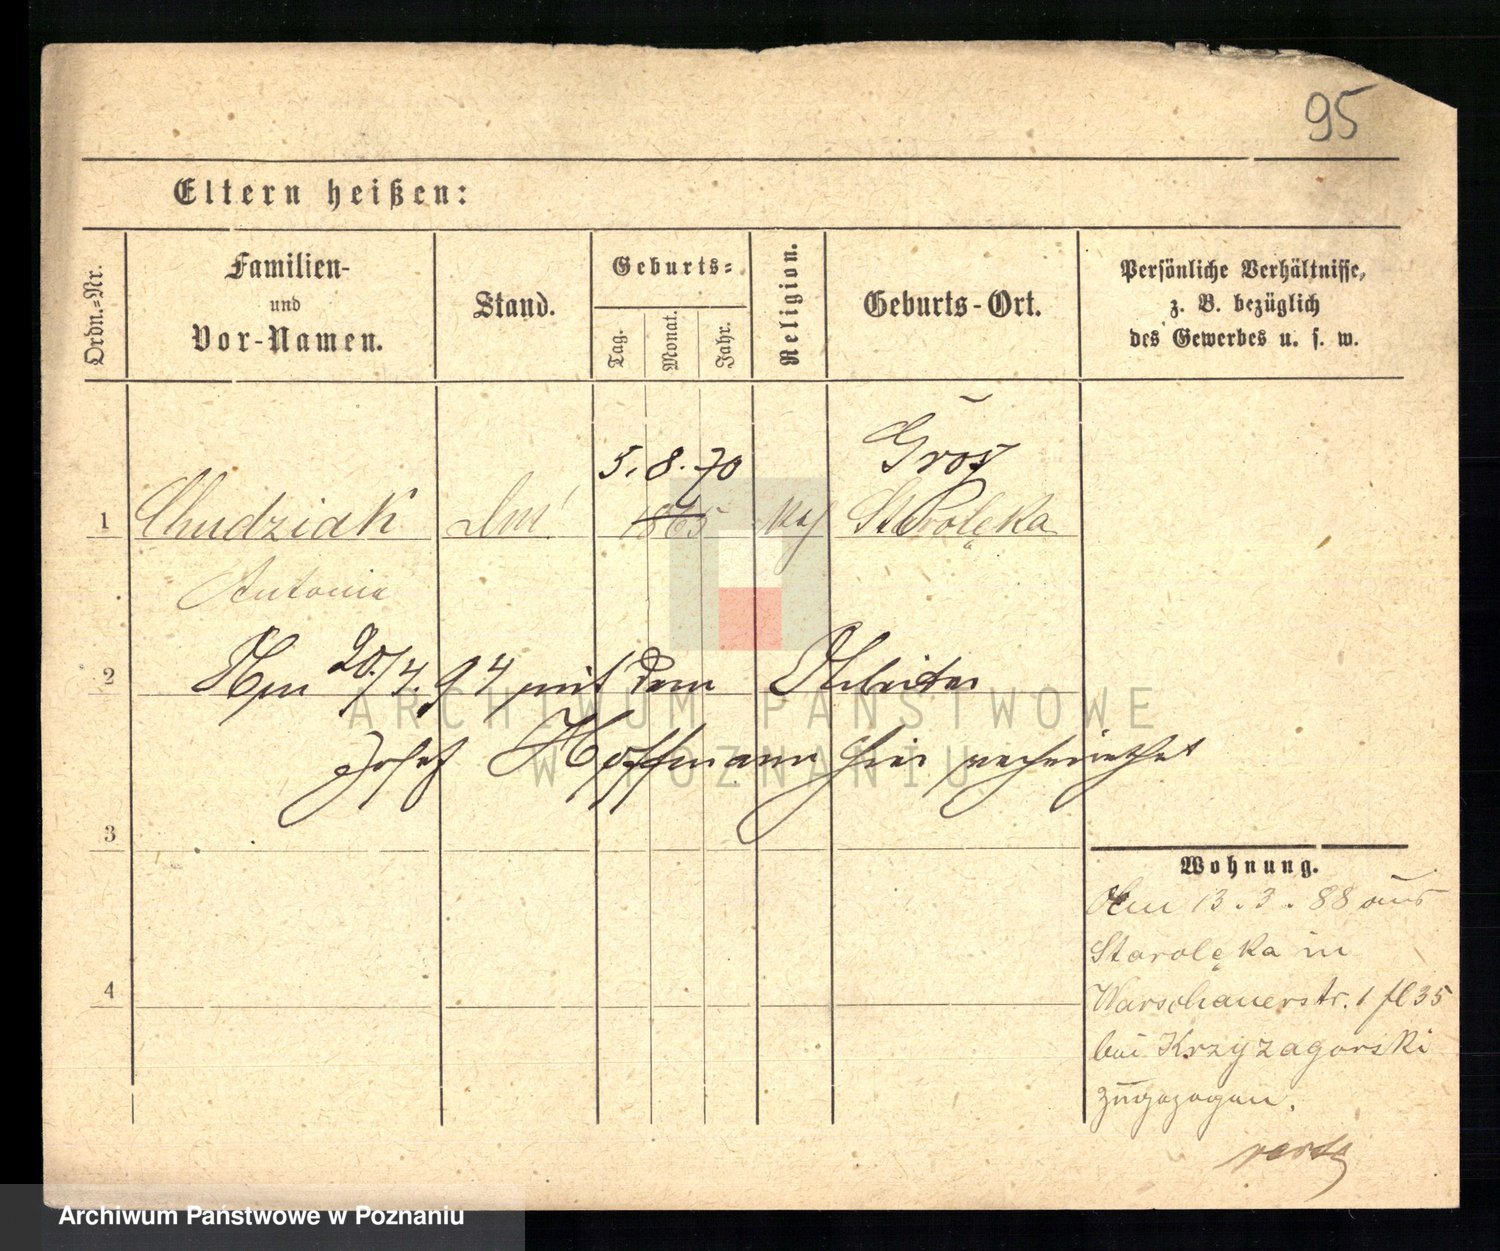 95
Eltern heißen:
Ordn.-Nr.
Familien-
und
Vor-Namen.
Stand.
Geburts-
Tag.
Monat.
Jahr.
Religion.
Geburts-Ort.
Persönliche Verhältnisse,
z. B. bezüglich
des Gewerbes u. s. w.
Gros
5. 8. 70
1 Chudziak 1865 Starolęka
Antonie
2 Am 20./4. 94 mit dem Arbeiter
Josef Hoffmann hier verheirathet
3
4
Wohnung.
Am 13. 3. 88 aus
Starolęka in
Warschauerstr. 1 fl 35
bei Krzyzagorski
zugezogen.
ARCHIWUM PAŃSTWOWE
W POZNANIU
Archiwum Państwowe w Poznaniu